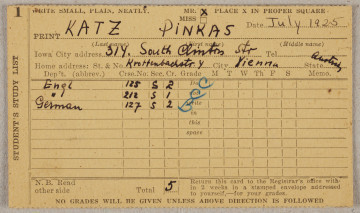 1
WRITE SMALL, PLAIN, NEATLY. MR. X PLACE X IN PROPER SQUARE
MISS
Print KATZ PINKAS Date, July 1925
(Last name) (Middle name)
Iowa City address: 314 South Clinton Str
Home address: St. & No. Krottenbachstr City Vienna State Austria
Dep't. (abbrev.) Crse.No. Sec. Cr. Grade M T W Th F S Memo.
Engl 125 S 2 C
" 212 S 1 C
German 127 S 2 C
in
this
space
STUDENT'S STUDY LIST
N. B. Read other side Total 5
Return this card to the Registrar's office within 2 weeks in a stamped envelope addressed to yourself,—for your grades.
NO GRADES WILL BE GIVEN UNLESS ABOVE DIRECTION IS FOLLOWED